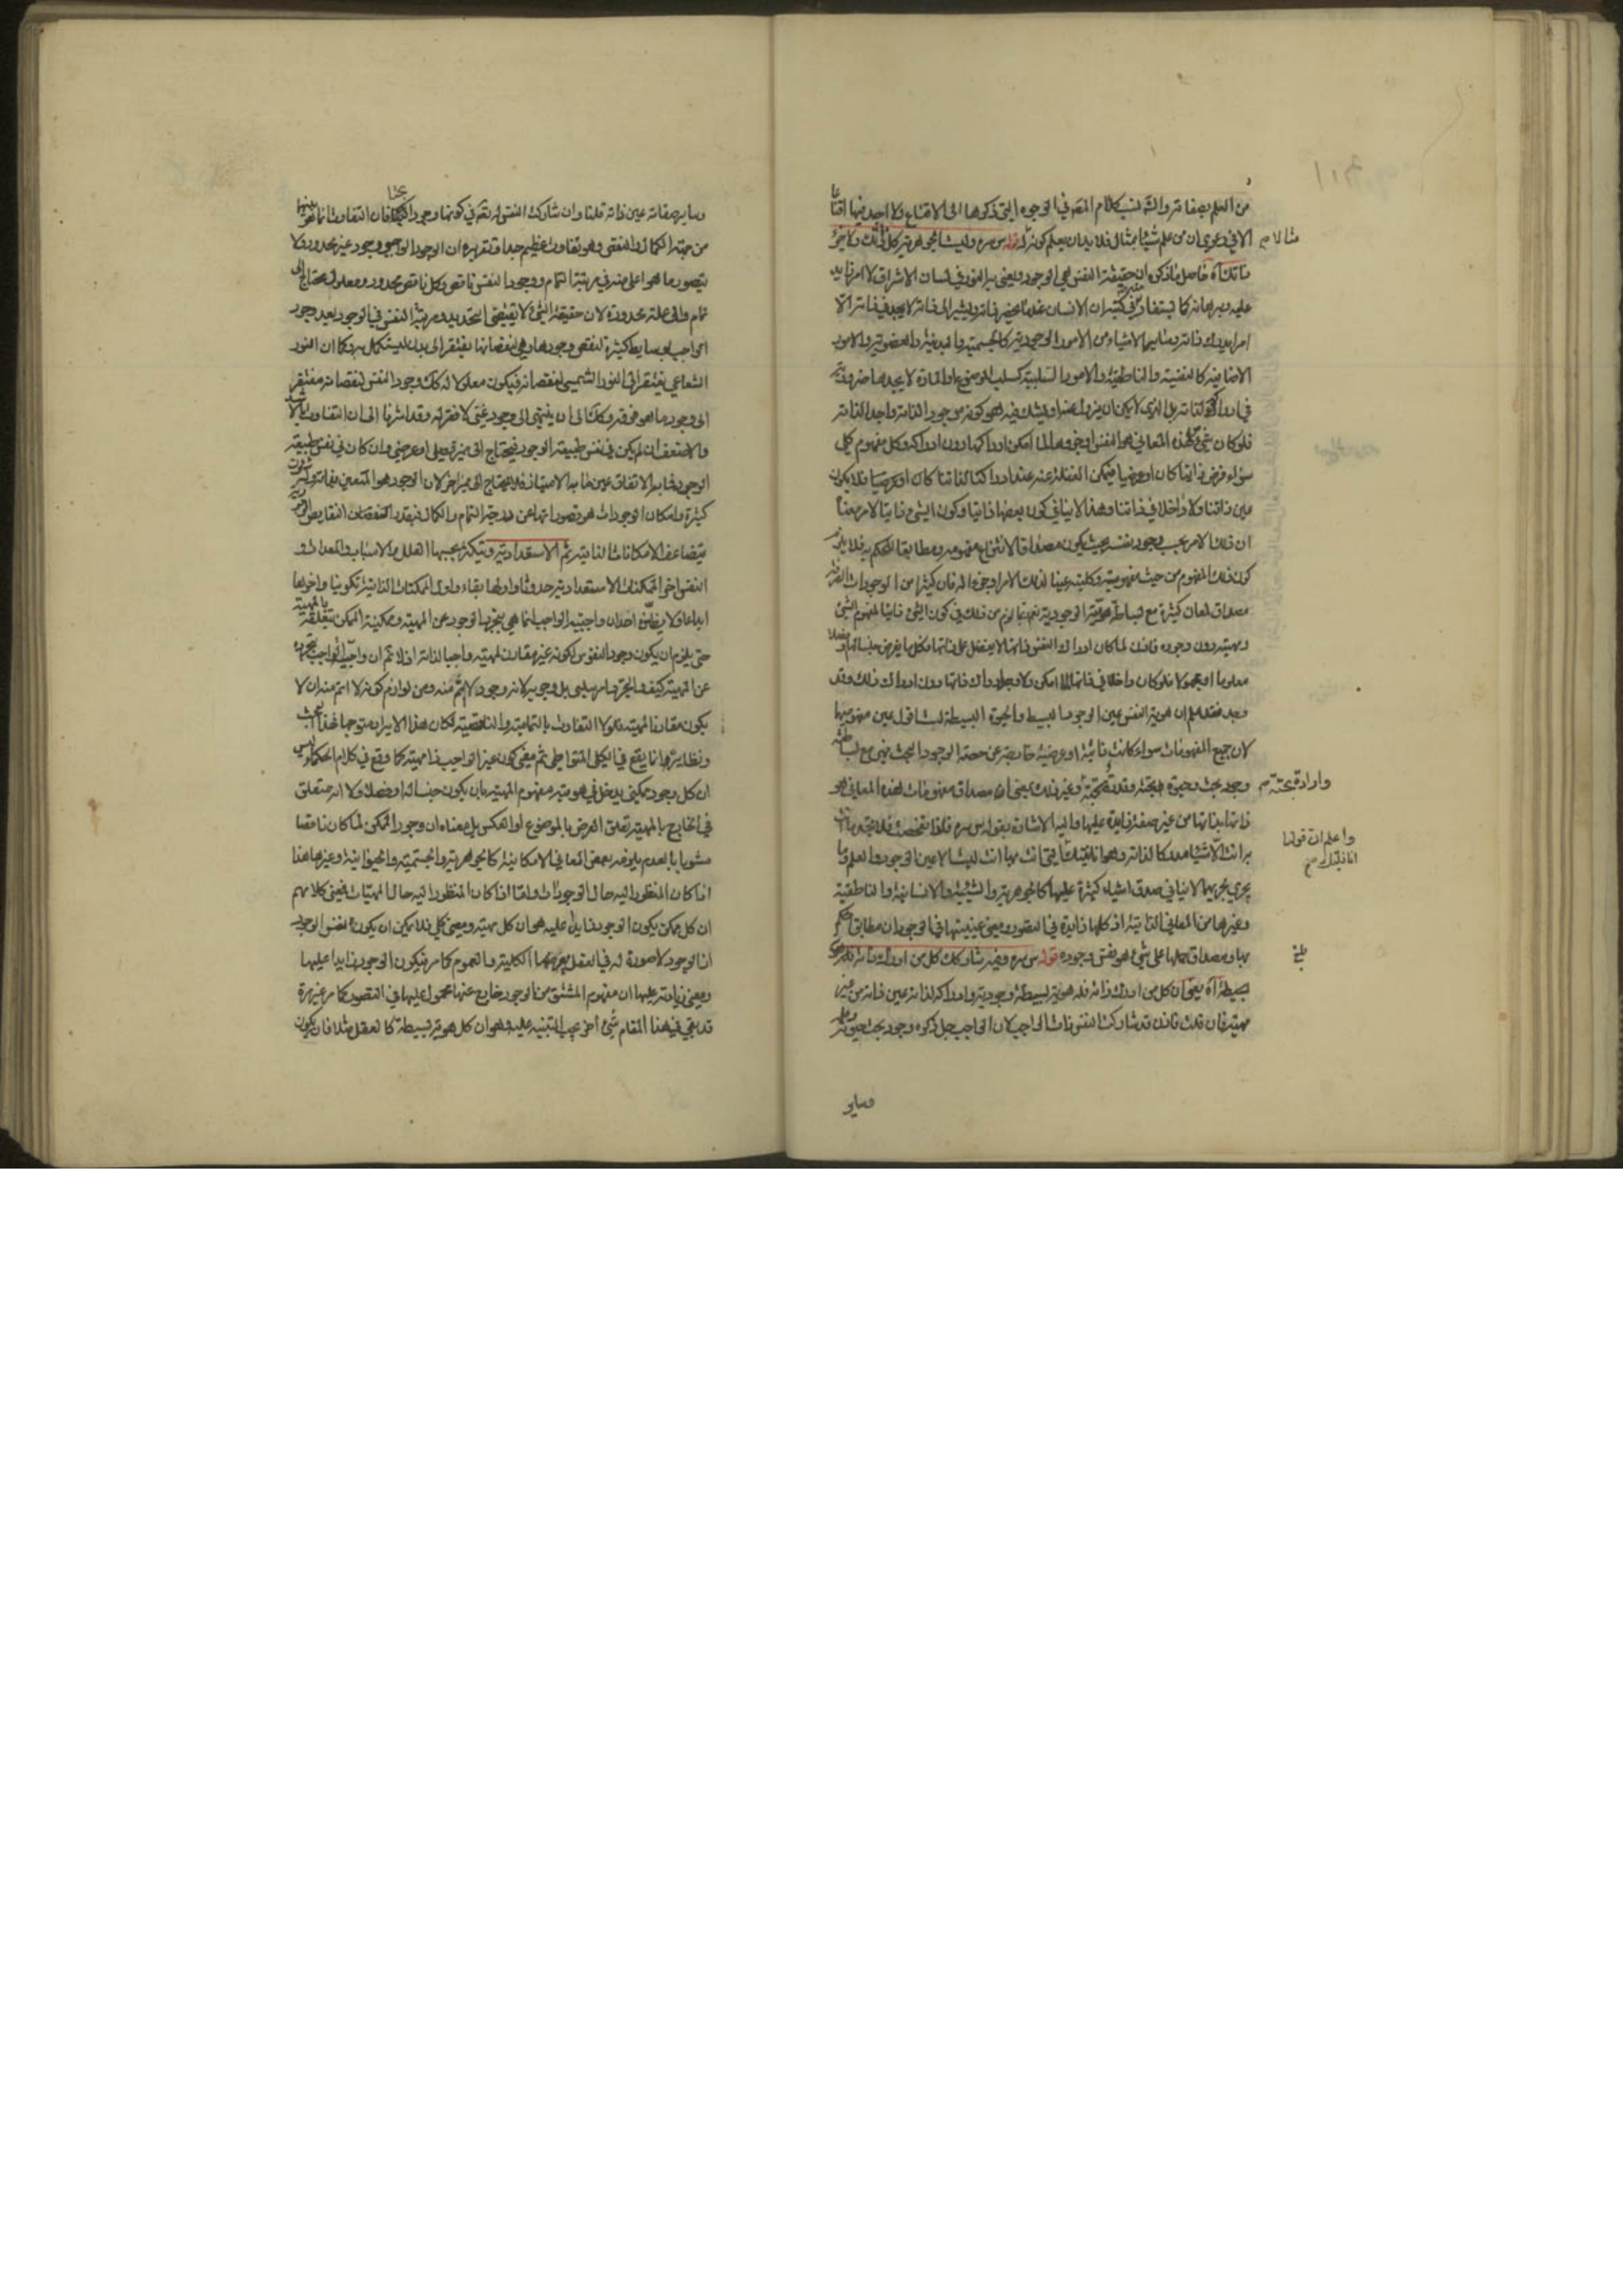 من العلم بصفاته والله ليس كلام المصه في الوجوه التي ذكروها الى الاقناع ولا اجد فيها اقنا
الا في دعوى ان من علم شيئا بمثال فلا بد ان يعلم كونه قوله س سره وليست الجوهرية كل ذلك
ذاتك آه حاصل ما ذكره ان حقيقة النفس هي الوجود ويعنى به النور في لسان الاشراق لا امر زايد
عليه وبرهانه كما يستفاد من كتبه ان الانسان عندما يحضر ذاته ويشير الى ذاته لا يجد في ذاته الا
امرا يدرك ذاته وساير الاشياء من الامور الوجودية كالجسمية والبدنية والعضوية والامور
الاضافية كالنفسية والناطقية والامور السلبية كسلب الموضوع او المادة لا يجدها ضرورية
في ادراكه لذاته بل الذي لا يمكن ان يزول عنه او يشك فيه هو كونه موجود الذاته واجد الذاته
فلو كان شيء من هذه المعاني هو النفس او جزءها لما امكن ادراكها دون ادراكه وكل مفهوم كلي
سواء فرض ذاتيا كان او عرضيا فيمكن الغفلة عنه عند ادراكنا لذاتنا كان او عرضيا فلا يكون
عين ذاتنا ولا داخلا في ذاتنا وهذا لا ينافي كون بعضها ذاتيا وكون الشيء ذاتيا لامر معناه
ان ذلك الامر بحسب وجود نفسه بحيث يكون مصداقا لانتزاع مفهومه ومطابقا للحكم به فلا يلزم
كون ذلك المفهوم من حيث مفهوميته وكليته عينا لذلك الامر او جزءا له فان كثيرا من الوجودات
مصداق لمعان كثيرة مع بساطة هويته الوجودية نعم ما لزم من ذلك في كون الشيء ذاتيا لمفهوم الشيء
ومهيته دون وجوده فاذن لما كان ادراك النفس ذاتها لا يفضل على ذاتها فكل ما يفرض جنسا لها او فصلا
معلوما او مجهولا فلو كان داخلا في ذاتها لما امكن ادراك ذاتها دون ادراك ذلك وقد
وجد فقد علم ان هوية النفس عين الوجود البسيط والحيوة البسيطة لست اقول عين مفهومها
لان جميع المفهومات سواء كانت ذاتية او عرضية خارجة عن حقيقة الوجود البحت فهي مع بساطته
وجود بحت وحيوة بحتة وقدرة بحتة وغير ذلك بمعنى ان مصداق مفهومات هذه المعاني هو
ذاتها بذاتها من غير صفة زايدة عليها واليه الاشارة بقوله س سره فلذا تفحصت فلا تجد ما انت
به انت الا شيئا مدركا لذاته وهو انانيتك التي انت بها انت ليست الا عين الوجود والعلم وما
يجري مجريهما لا ينافي صدق اشياء كثيرة عليها كالجوهرية والشيئية والانسانية والناطقية
وغيرها من المعاني الذاتية اذ كلها زايدة في التصور ومعنى عينيتها في الوجود ان مطابق الحكم
بها ومصداق حملها على شيء هو نفس وجوده قوله س سره وفيه شاركك كل من ادرك ذاته
بسيطة آه يعني ان كل من ادرك ذاته فله هوية بسيطة وجودية وادراكه لذاته عين ذاته من غير
مهية فان قلت فاذن قد شاركت النفس ذات الواجب لان الواجب جل ذكره وجود بحت
وساير
مثالا م
وارادة بحتة م
واعلم ان قولنا
انانيتك م
وساير صفاته عين ذاته قلنا وان شاركت النفس له تعه في كونها وجودا بحتا فان التفاوت انما هو بينها
من جهة الكمال والنقص وهو تفاوت عظيم جدا وتقريره ان الوجود الواجبي وجود غير محدود ولا
يتصور ما هو اعلى منه في مرتبة التمام ووجود النفس ناقص وكل ناقص محدود ومعلول يحتاج الى
تمام والى علة محدودة لان حقيقة الشيء لا يقتضي التحديد ومرتبة النفس في الوجود بعد وجود
الواجب بوسايط كثيرة لنقص وجودها وهي لنقصانها تفتقر الى بدن ليستكمل به وكما ان النور
الشعاعي يفتقر الى النور الشمسي لنقصانه فيكون معلولا له كك وجود النفس لنقصانه مفتقر
الى وجود ما هو فوقه وكك الى ان ينتهي الى وجود غني لا فقر له وقد اشرنا الى ان التفاوت بالاشد
والاضعف ان لم يكن في نفس طبيعة الوجود فيحتاج الى مميز فصلي او عرضي وان كان في نفس طبيعة
الوجود فما به الاتفاق عين ما به الامتياز فلا يحتاج الى مميز اخر لان الوجود هو المتعين بذاته
كثيرة وامكان الوجودات هو قصوراتها عن درجة التمام والكمال فبقدر النقصان النقايص
يتضاعف الامكانات الذاتية ثم الاستعدادية ويتكثر بحسبها العلل من الاسباب والمعدات و
النفس اخر الممكنات الاستعدادية حدوثا واولها بقاء واول الممكنات الذاتية تكوينا واخرها
ابداعا ولا يظن احد ان واجبية الواجب انما هي بتجرد الوجود عن المهية وممكنية الممكن بتعلقه بالمهية
حتى يلزم ان يكون وجود النفوس لكونه غير مقارن لمهية واجبا لذاته اذ لا نم ان واجبية الواجب بتجرده
عن المهية كيف والتجرد امر سلبي بل وجوبه لانه وجود لا اتم منه ومن لوازم كونه لا اتم منه ان لا
يكون مقارنا لمهية فلولا التفاوت بالتمامية والناقصية لكان هذا الايراد متوجها
ونظايره انما يقع في الكلي المتواطي ثم معنى كون غير الواجب ذا مهية كما وقع في كلام الحكماء ليس
ان كل وجود ممكني يدخل في هويته مفهوم المهية بان يكون جنسا له او فصلا ولا انه متعلق
في الخارج بالمهية تعلق العرض بالموضوع او العكس بل معناه ان وجود الممكن لما كان ناقصا
مشوبا بالعدم يلزمه بعض المعاني الامكانية كالجوهرية والجسمية والحيوانية وغيرها هذا
اذا كان المنظور اليه حال الوجودات واما اذا كان المنظور اليه حال المهيات فمعنى كلامهم
ان كل ممكن يكون الوجود زايدا عليه هو ان كل مهية ومعنى كلي فلا يمكن ان يكون نفس الوجود
اذ الوجود لا صورة له في العقل يعرضها الكلية والعموم كما مر فيكون الوجود زايدا عليها
ومعنى زيادته عليها ان مفهوم المشتق من الوجود خارج عنها محمول عليها في التصور كما مر غير مرة
قد بقي في هذا المقام شيء اخر يجب التنبيه عليه وهو ان كل هوية بسيطة كالعقل مثلا فان يكون